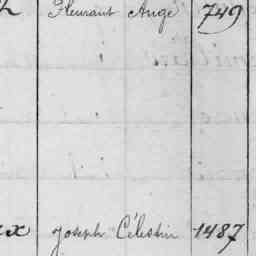 Fleurant Ange 749
Joseph Célestin 1487